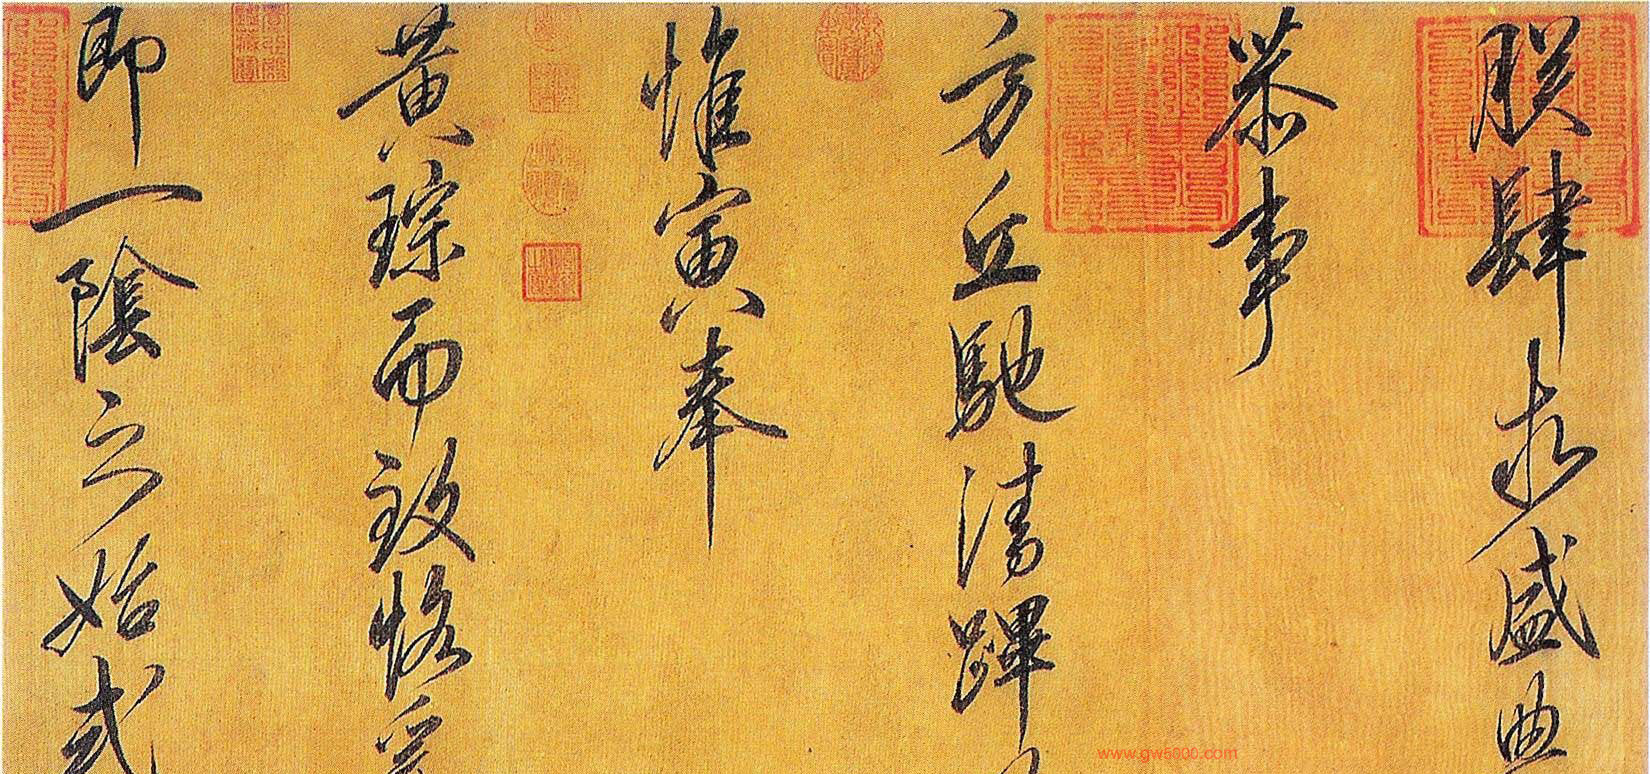 朕肆求盛典
恭事
方丘馳清蹕
惟寅奉
黄琮而致恪爰
即一陰之始式
www.gw5000.com